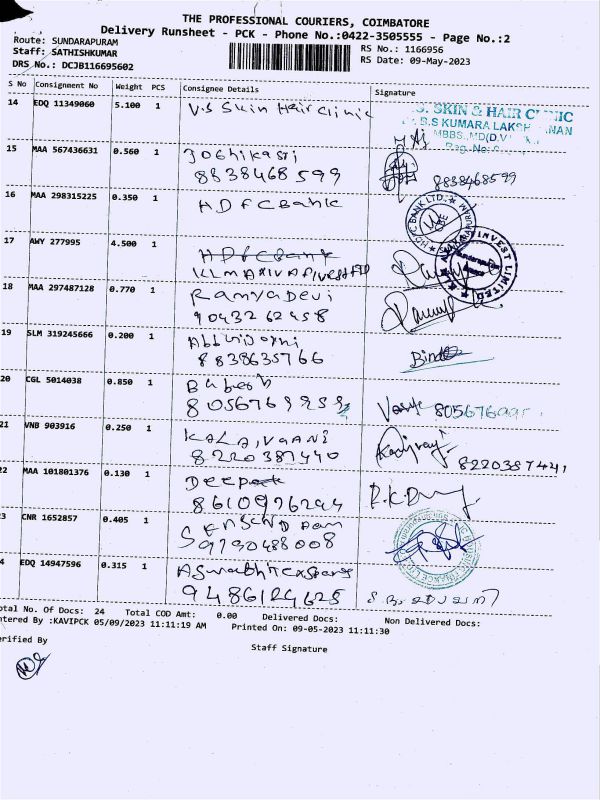 THE PROFESSIONAL COURIERS, COIMBATORE
Delivery Runsheet - PCK - Phone No.:0422-3505555 - Page No.:2
Route: SUNDARAPURAM
Staff: SATHISHKUMAR
DRS No.: DCJB116695602
RS No.: 1166956
RS Date: 09-May-2023
S No Consignment No Weight PCS Consignee Details Signature
14 EDQ 11349060 5.100 1 V.S Skin Hair Clinic
S. SKIN & HAIR CLINIC
B.S KUMARA LAKSH NAN
MBBS, MD(D.V
15 MAA 567436631 0.560 1 Joshikasri
8838468599 8838468599
16 MAA 298315225 0.350 1 HDFC Bank
17 AWY 277995 4.500 1 HDFC Bank
INVEST LIMITED
18 MAA 297487128 0.770 1 Ramya Devi
9043262458
19 SLM 319245666 0.200 1
8838635766
20 CGL 5014038 0.850 1
21 VNB 903916 0.250 1 KALAIVAANI
8220387440 8220387441
22 MAA 101801376 0.130 1 Deepak
8610926244
23 CNR 1652857 0.405 1
9790488008
24 EDQ 14947596 0.315 1
9486124625
Total No. Of Docs: 24 Total COD Amt: 0.00 Delivered Docs: Non Delivered Docs:
Entered By :KAVIPCK 05/09/2023 11:11:19 AM Printed On: 09-05-2023 11:11:30
Verified By Staff Signature